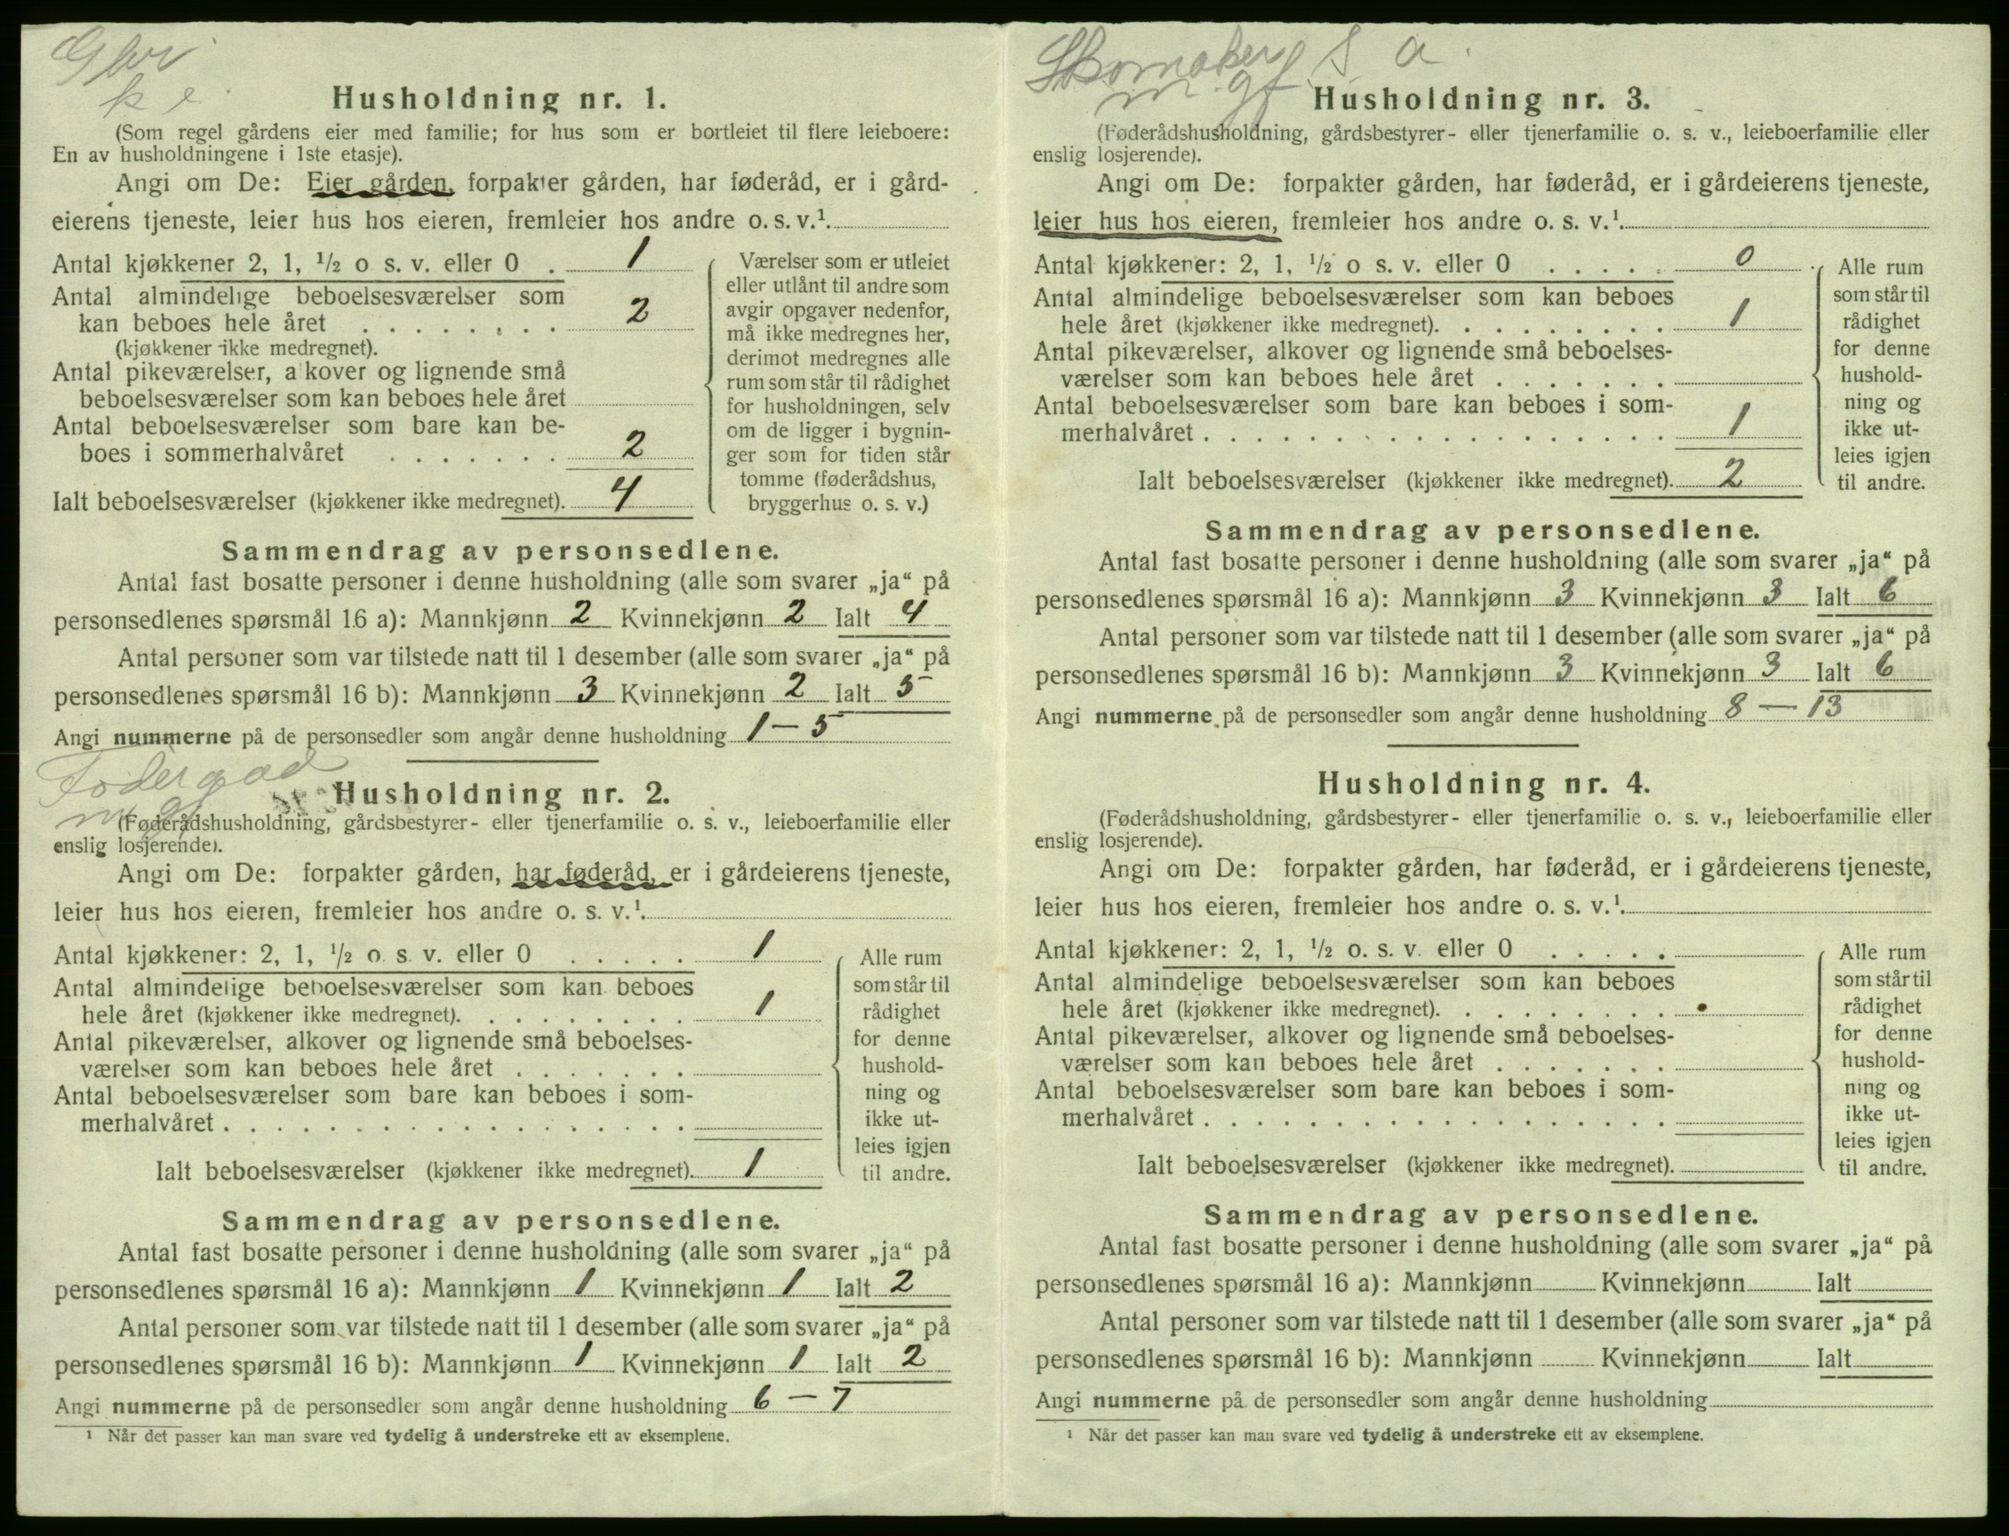 Gbr
k e.
Husholdning nr. 1.
(Som regel gårdens eier med familie; for hus som er bortleiet til flere leieboere:
En av husholdningene i 1ste etasje).
Angi om De: Eier gården, forpakter gården, har føderåd, er i gård-
eierens tjeneste, leier hus hos eieren, fremleier hos andre o. s. v.¹.
Antal kjøkkener 2, 1, ½ o s. v. eller 0 . 1
Antal almindelige beboelsesværelser som
kan beboes hele året . . . . . . . . 2
(kjøkkener ikke medregnet).
Antal pikeværelser, a kover og lignende små
beboelsesværelser som kan beboes hele året
Antal beboelsesværelser som bare kan be-
boes i sommerhalvåret . . . . . . . 2
Ialt beboelsesværelser (kjøkkener ikke medregnet). 4
Værelser som er utleiet
eller utlånt til andre som
avgir opgaver nedenfor,
må ikke medregnes her,
derimot medregnes alle
rum som står til rådighet
for husholdningen, selv
om de ligger i bygnin-
ger som for tiden står
tomme (føderådshus,
bryggerhus o. s. v.)
Sammendrag av personsedlene.
Antal fast bosatte personer i denne husholdning (alle som svarer „ja“ på
personsedlenes spørsmål 16 a): Mannkjønn 2 Kvinnekjønn 2 Ialt 4
Antal personer som var tilstede natt til 1 desember (alle som svarer „ja“ på
personsedlenes spørsmål 16 b): Mannkjønn 3 Kvinnekjønn 2 Ialt 5
Angi nummerne på de personsedler som angår denne husholdning 1 — 5
m gf
Husholdning nr. 2.
(Føderådshusholdning, gårdsbestyrer- eller tjenerfamilie o. s. v., leieboerfamilie eller
enslig losjerende).
Angi om De: forpakter gården, har føderåd, er i gårdeierens tjeneste,
leier hus hos eieren, fremleier hos andre o. s. v.¹.
Antal kjøkkener: 2, 1, ½ o. s. v. eller 0 . . . . . 1
Antal almindelige beboelsesværelser som kan beboes
hele året (kjøkkener ikke medregnet). . . . . . . . . 1
Antal pikeværelser, alkover og lignende små beboelses-
værelser som kan beboes hele året . . . . . . .
Antal beboelsesværelser som bare kan beboes i som-
merhalvåret . . . . . . . . . . . . . . . . . .
Ialt beboelsesværelser (kjøkkener ikke medregnet). 1
Alle rum
som står til
rådighet
for denne
hushold-
ning og
ikke ut-
leies igjen
til andre.
Sammendrag av personsedlene.
Antal fast bosatte personer i denne husholdning (alle som svarer „ja“ på
personsedlenes spørsmål 16 a): Mannkjønn 1 Kvinnekjønn 1 Ialt 2
Antal personer som var tilstede natt til 1 desember (alle som svarer „ja“ på
personsedlenes spørsmål 16 b): Mannkjønn 1 Kvinnekjønn 1 Ialt 2
Angi nummerne på de personsedler som angår denne husholdning 6 — 7
¹ Når det passer kan man svare ved tydelig å understreke ett av eksemplene.
Skomaker s a.
m gf
Husholdning nr. 3.
(Føderådshusholdning, gårdsbestyrer- eller tjenerfamilie o. s. v., leieboerfamilie eller
enslig losjerende).
Angi om De: forpakter gården, har føderåd, er i gårdeierens tjeneste,
leier hus hos eieren, fremleier hos andre o. s. v.¹.
Antal kjøkkener: 2, 1, ½ o s. v. eller 0 . . . . . 0
Antal almindelige beboelsesværelser som kan beboes
hele året (kjøkkener ikke medregnet). . . . . . . . . 1
Antal pikeværelser, alkover og lignende små beboelses-
værelser som kan beboes hele året . . . . . . .
Antal beboelsesværelser som bare kan beboes i som-
merhalvåret . . . . . . . . . . . . . . . . . . 1
Ialt beboelsesværelser (kjøkkener ikke medregnet). 2
Alle rum
som står til
rådighet
for denne
hushold-
ning og
ikke ut-
leies igjen
til andre.
Sammendrag av personsedlene.
Antal fast bosatte personer i denne husholdning (alle som svarer „ja“ på
personsedlenes spørsmål 16 a): Mannkjønn 3 Kvinnekjønn 3 Ialt 6
Antal personer som var tilstede natt til 1 desember (alle som svarer „ja“ på
personsedlenes spørsmål 16 b): Mannkjønn 3 Kvinnekjønn 3 Ialt 6
Angi nummerne på de personsedler som angår denne husholdning 8 — 13
Husholdning nr. 4.
(Føderådshusholdning, gårdsbestyrer- eller tjenerfamilie o. s. v., leieboerfamilie eller
enslig losjerende).
Angi om De: forpakter gården, har føderåd, er i gårdeierens tjeneste,
leier hus hos eieren, fremleier hos andre o. s. v.¹.
Antal kjøkkener: 2, 1, ½ o. s. v. eller 0 . . . . .
Antal almindelige beboelsesværelser som kan beboes
hele året (kjøkkener ikke medregnet). . . . . . . . .
Antal pikeværelser, alkover og lignende små beboelses-
værelser som kan beboes hele året . . . . . . .
Antal beboelsesværelser som bare kan beboes i som-
merhalvåret . . . . . . . . . . . . . . . . . .
Ialt beboelsesværelser (kjøkkener ikke medregnet).
Alle rum
som står til
rådighet
for denne
hushold-
ning og
ikke ut-
leies igjen
til andre.
Sammendrag av personsedlene.
Antal fast bosatte personer i denne husholdning (alle som svarer „ja“ på
personsedlenes spørsmål 16 a): Mannkjønn Kvinnekjønn Ialt
Antal personer som var tilstede natt til 1 desember (alle som svarer „ja“ på
personsedlenes spørsmål 16 b): Mannkjønn Kvinnekjønn Ialt
Angi nummerne på de personsedler som angår denne husholdning
¹ Når det passer kan man svare ved tydelig å understreke ett av eksemplene.